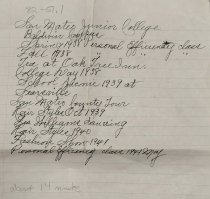 82-51.1
San Mateo Junior College
Baldwin Campus
Spring 1938 Personal Efficiency class
Fall 1938
Tea at Oak Tree Inn.
College Day 1938
School Picnic 1939 at
Searsville
San Mateo County Tour
Hair Styles Oct 1939
Dancing
Hair Styles 1940
Fashion Show 1941
Personal Efficiency class
about 14 minutes